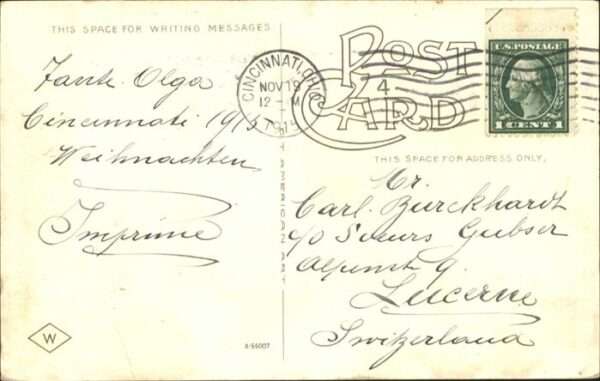 THIS SPACE FOR WRITING MESSAGES
Tante Olga
Cincinnati 1915
Weihnachten
Imprimé
W
S-55007
AMERICAN ART
POST CARD
CINCINNATI, OHIO
NOV 19
12 - M
1915
4
U.S. POSTAGE
1 CENT 1
THIS SPACE FOR ADDRESS ONLY.
Mr.
Carl Burckhardt
c/o Soeurs Gubser
Alpenst 9.
Lucerne
Switzerland